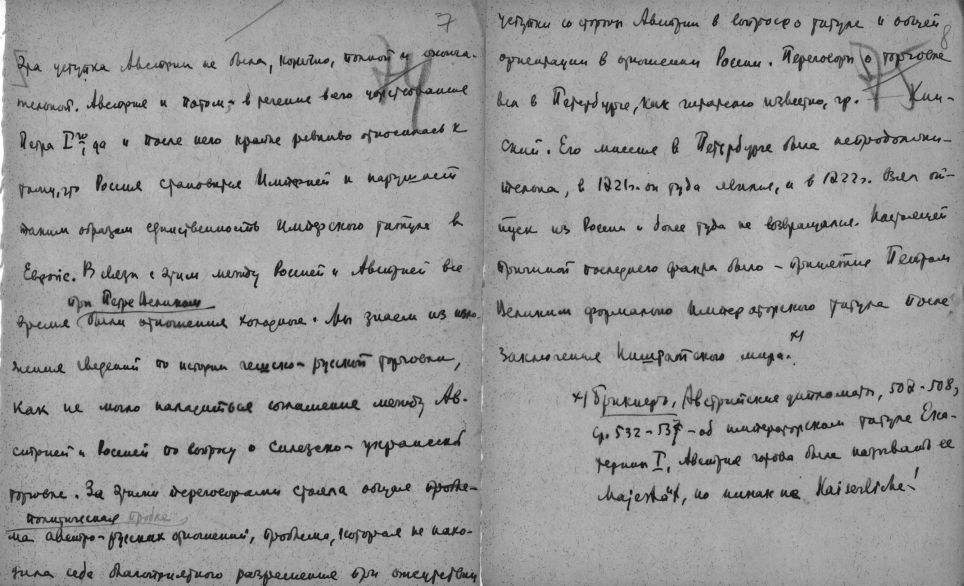 7
Эта уступка Австрии не была, конечно, полной и оконча-
тельной. Австрия и потом, в течение всего царствования
Петра I го, да и после него крайне ревниво относилась к
тому, что Россия становится Империей и нарушает
таким образом единственность Имперского титула в
Европе. В связи с этим между Россией и Австрией все
при Петре Великом
время были отношения холодные. Мы знаем из изло-
жения сведений по истории чешско-русской торговли,
как не могло наладиться соглашение между Ав-
стрией и Россией по вопросу о силезско-украинской
торговле. За этими переговорами стояла общая пробле-
политическая
ма австро-русских отношений, проблема, которая не нахо-
дила себе благоприятного разрешения при отсутствии
8
уступки со стороны Австрии в вопросе о титуле и общей
ориентации в отношении России. Переговоры о торговле
вел в Петербурге, как читателю известно, гр. Кин-
ский. Его миссия в Петербурге была непродолжи-
тельна, в 1721 г. он туда явился, а в 1722 г. взял от-
пуск из России и более туда не возвращался. Настоящей
причиной последнего факта было – принятие Петром
Великим формально Императорского титула после
заключения Ништатского мира. x)
x) Брикнер, Австрийские дипломаты, 502-508,
ср. 532-537 – об императорском титуле Ека-
терины I, Австрия готова была называть ее
Majestät, но никак не Kaiserliche!